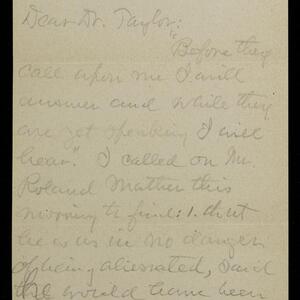 Dear Dr. Taylor:
"Before they
call upon me I will
answer and while they
are yet speaking I will
hear." I called on Mr.
Roland Mather this
morning to find: 1. that
he was in no danger
of being alienated, said
he would have been